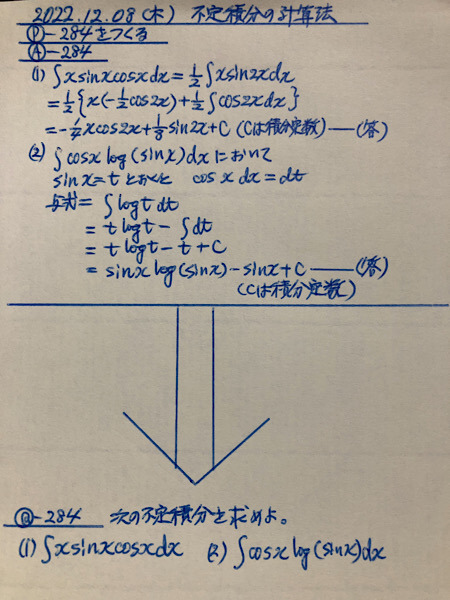 2022.12.08(木) 不定積分の計算法
Ⓟ-284をつくる
Ⓐ-284
(1) ∫x sinx cosx dx = 1/2 ∫x sin2x dx
= 1/2 {x(-1/2 cos2x) + 1/2 ∫cos2x dx}
= -1/4 x cos2x + 1/8 sin2x + C (Cは積分定数) —(答)
(2) ∫cosx log(sinx)dx において
sinx = t とおくと cosx dx = dt
与式 = ∫log t dt
= t log t - ∫dt
= t log t - t + C
= sinx log(sinx) - sinx + C —(答)
(Cは積分定数)
Ⓠ-284 次の不定積分を求めよ。
(1) ∫x sinx cosx dx (2) ∫cosx log(sinx)dx